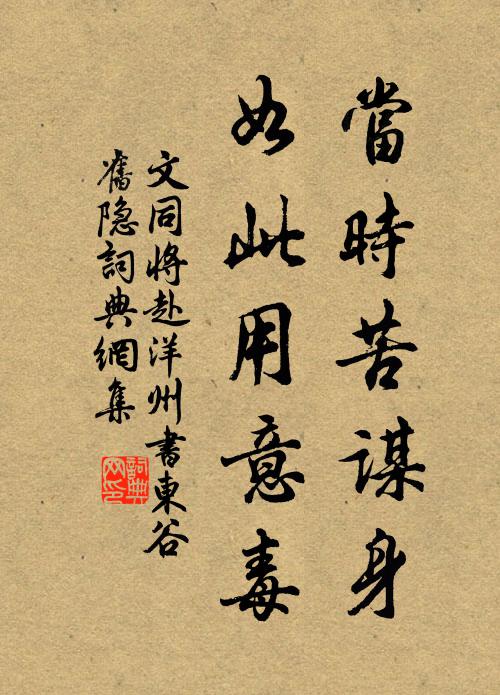 當時苦謀身
如此用意毒
文同將赴洋州書東谷
舊隐詞典網集
詞典
网印